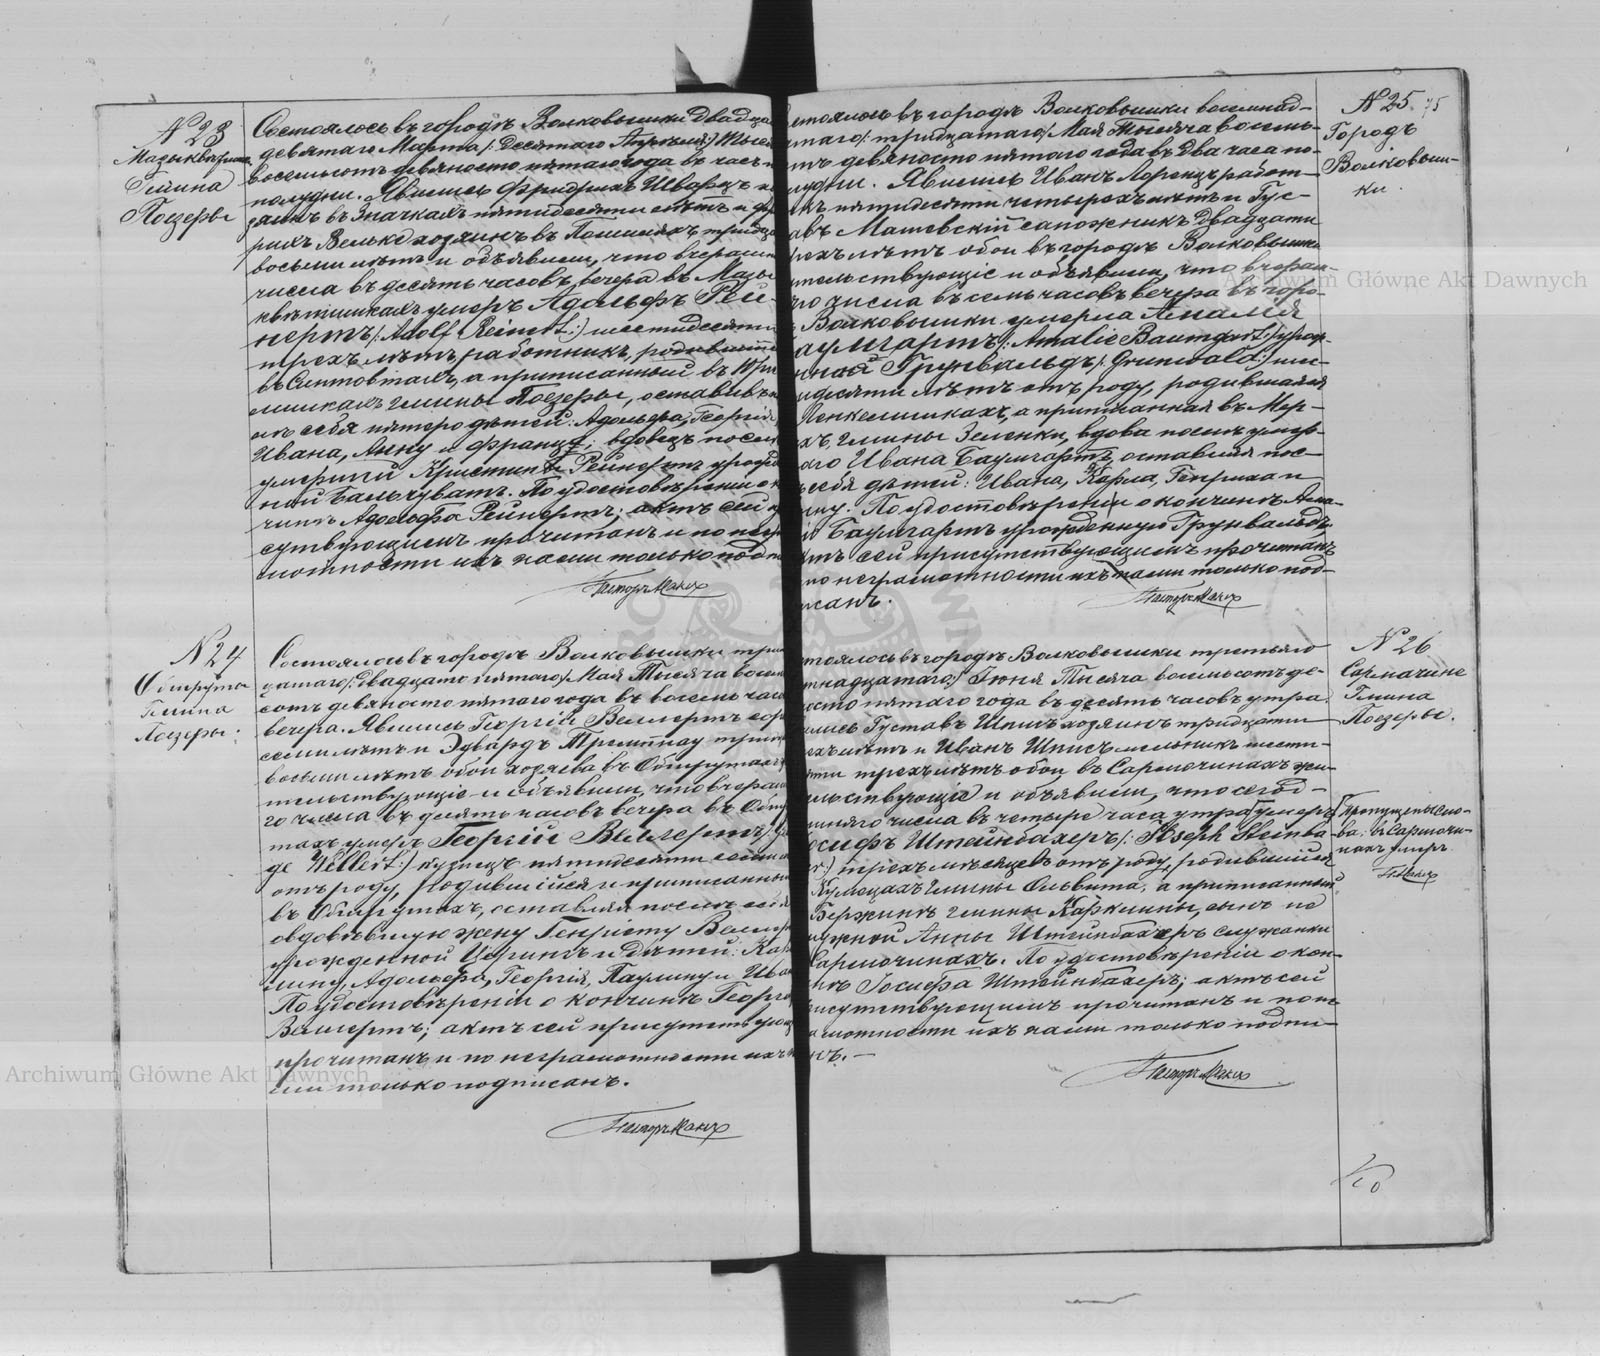 N 23
Гмина
Поезеры
Состоялось въ городѣ Волковышки двадца
девятаго Марта /: десятаго Апрѣля :/ тыся
восемьсотъ девяносто пятаго года въ часъ
полудни. Явились Фридрихъ Шварцъ
въ Значкахъ пятидесяти лѣтъ и
рихъ Вельке хозяинъ въ
восьми лѣтъ и объявили, что вчераш
числа въ десять часовъ вечера въ Мазы
умеръ Адольфъ Рей-
нертъ /: Adolf Reinert :/ шестидесяти
трехъ лѣтъ, работникъ, родившійся
въ Синтовтахъ, а приписанный въ
гмины Поезеры, оставивъ
себя пятеро дѣтей: Адольфа, Георгія
Ивана, Анну и Франца; вдовецъ послѣ
умершей Кристины Рейнертъ урожд
ной Бальчуватъ. По удостовѣреніи о кон
чинѣ Адольфа Рейнертъ; актъ сей
сутствующимъ прочитанъ и по негра
мотности ихъ нами только подпи
Пасторъ Махъ
N 24
Обшруты
Гмина
Поезеры.
Состоялось въ городѣ Волковышки трид
цатаго /: двадцать пятаго :/ Мая Тысяча восем
сотъ девяносто пятаго года въ восемь часов
вечера. Явились Георгій Веллертъ сор
семи лѣтъ и Эдвардъ Тремпнау трид
восьми лѣтъ обои хозяева въ Обшрутахъ
тельствующіе и объявили, что вчераш
го числа въ десять часовъ вечера въ Обшр
тахъ умеръ Георгій Веллертъ /:
ge Wellert :/ кузнецъ пятидесяти семи
отъ роду, родившійся и приписанный
въ Обшрутахъ, оставляя послѣ себя
овдовѣвшую жену Генріету Веллерт
урожденной Церингъ и дѣтей: Кар
лину, Адольфа, Георгія, Паулину и Иван
По удостовѣреніи о кончинѣ Георгія
Веллертъ; актъ сей присутствующ
прочитанъ и по неграмотности ихъ н
ми только подписанъ.
Пасторъ Махъ
N 25. 75
Городъ
Волковыш-
ки.
стоялось въ городѣ Волковышки восемнад-
цатаго /: тридцатаго :/ Мая Тысяча восемь-
сотъ девяносто пятаго года въ два часа по-
лудни. Явились Иванъ Лоренцъ работ-
никъ пятидесяти четырехъ лѣтъ и Гус-
тавъ Машевскій сапожникъ двадцати
трехъ лѣтъ обои въ городѣ Волковышки
жительствующіе и объявили, что вчераш-
няго числа въ семь часовъ вечера въ горо-
дѣ Волковышки умерла Амалія
Баумгартъ /: Amalie Baumgart :/ урож-
денной Грунвальдъ /: Grunwald :/ шес-
тидесяти лѣтъ отъ роду, родившаяся
Пенкелишкахъ, а приписанная въ Мер-
хъ гмины Зеленки, вдова послѣ умер-
шаго Ивана Баумгартъ, оставляя пос-
лѣ себя дѣтей: Ивана, Карла, Генриха и
ину. По удостовѣреніи о кончинѣ Ама-
ліи Баумгартъ урожденную Грунвальдъ
актъ сей присутствующимъ прочитанъ
и по неграмотности ихъ нами только под-
писанъ.
Пасторъ Махъ
N 26
Сармачине
Гмина
Поезеры.
стоялось въ городѣ Волковышки третьяго
пятнадцатаго :/ Іюня Тысяча восемьсотъ де-
вяносто пятаго года въ десять часовъ утра.
Явились Густавъ Шписъ хозяинъ тридцати
трехъ лѣтъ и Иванъ Шписъ мельникъ шести-
десяти трехъ лѣтъ обои въ Сармочинахъ жи-
тельствующіе и объявили, что сегод-
няшняго числа въ четыре часа утра умеръ
Іосифъ Штейнбахеръ /: Joseph Steinba-
er :/ трехъ мѣсяцевъ отъ роду, родившійся
Кумецахъ гмины Ольвита, а приписанный
Бержини гмины Карклины, сынъ не
мужной Анны Штейнбахеръ служанки
Сармочинахъ. По удостовѣреніи о кон-
чинѣ Іосифа Штейнбахеръ; актъ сей
присутствующимъ прочитанъ и по не
грамотности ихъ нами только подпи-
санъ. —
Пасторъ Махъ
Пропущены сло-
ва: въ Сармочи-
нахъ умеръ
П. Махъ
Archiwum Główne Akt Dawnych
Archiwum Główne Akt Dawnych